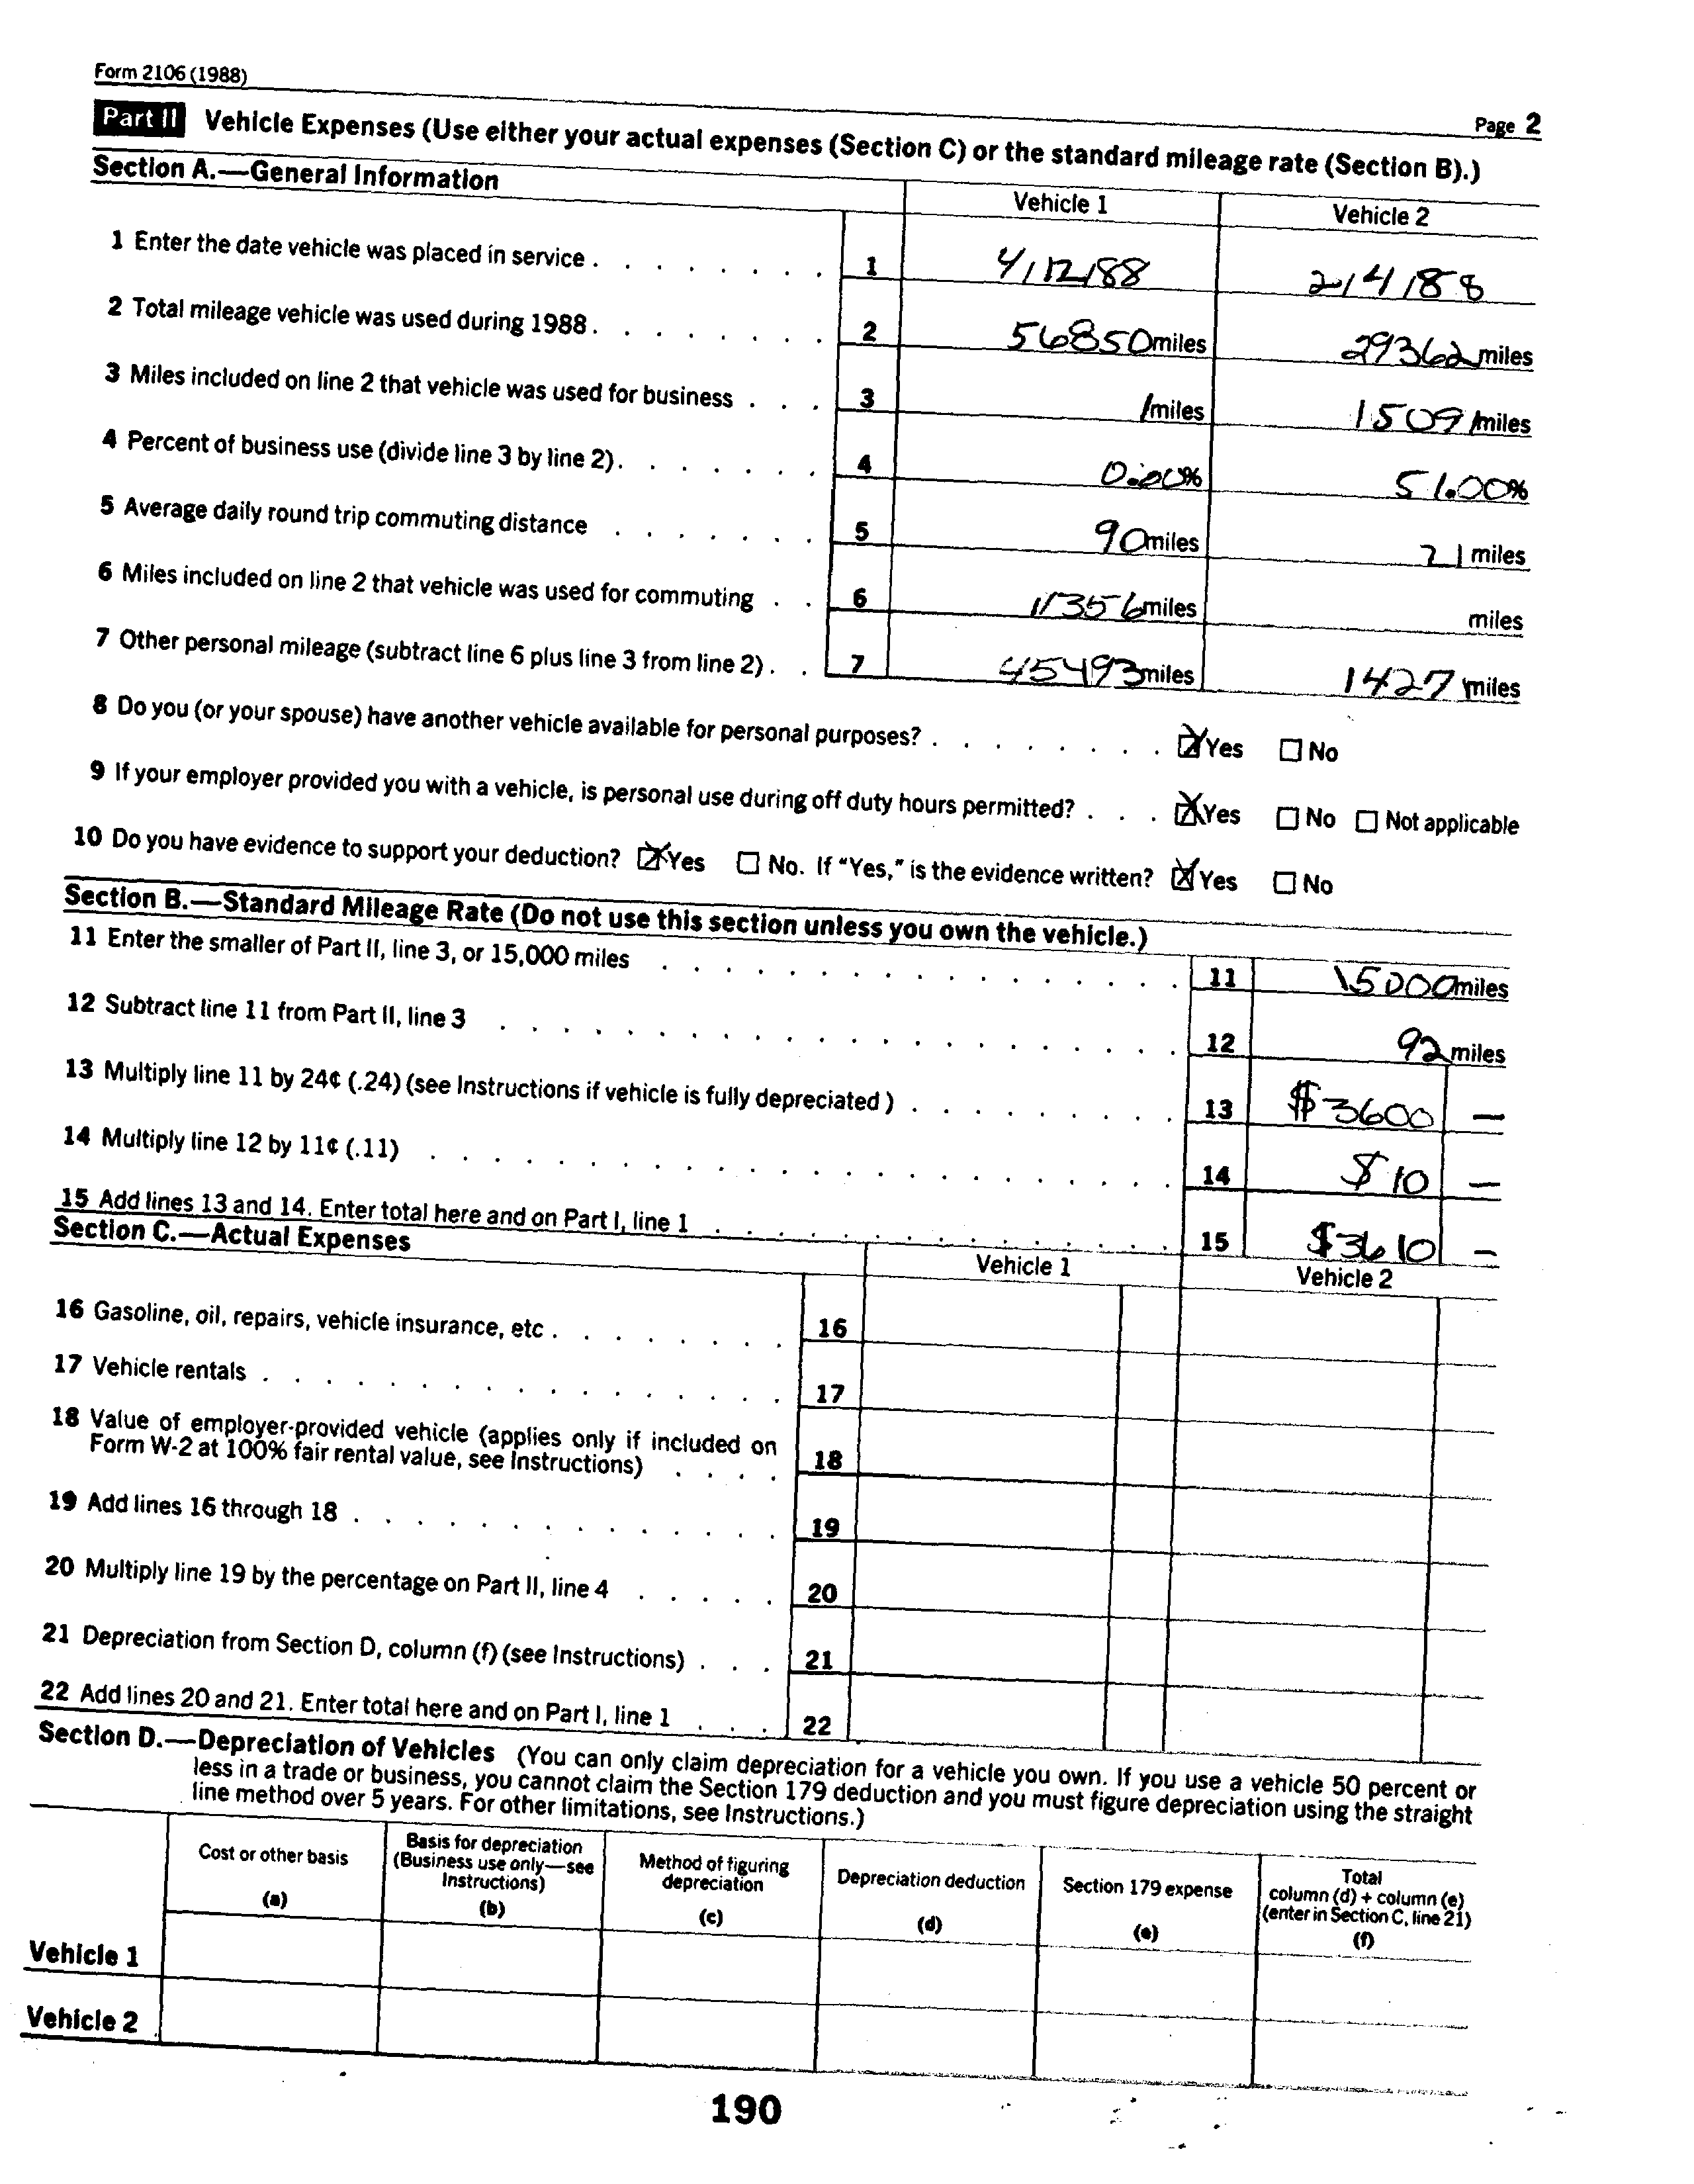 Form 2106 (1988)
Page 2
Part II Vehicle Expenses (Use either your actual expenses (Section C) or the standard mileage rate (Section B).)
Section A.—General Information
Vehicle 1 Vehicle 2
1 Enter the date vehicle was placed in service . . . . . . . . 1 4/12/88 2/4/88
2 Total mileage vehicle was used during 1988 . . . . . . . . 2 56850 miles 29362 miles
3 Miles included on line 2 that vehicle was used for business . . . 3 1 miles 15091 miles
4 Percent of business use (divide line 3 by line 2) . . . . . . . 4 0.00% 51.00%
5 Average daily round trip commuting distance . . . . . . . 5 90 miles 21 miles
6 Miles included on line 2 that vehicle was used for commuting . . 6 11356 miles miles
7 Other personal mileage (subtract line 6 plus line 3 from line 2) . . 7 45493 miles 1427 miles
8 Do you (or your spouse) have another vehicle available for personal purposes? . . . . . . . . ☒ Yes ☐ No
9 If your employer provided you with a vehicle, is personal use during off duty hours permitted? . . . ☒ Yes ☐ No ☐ Not applicable
10 Do you have evidence to support your deduction? ☒ Yes ☐ No. If "Yes," is the evidence written? ☒ Yes ☐ No
Section B.—Standard Mileage Rate (Do not use this section unless you own the vehicle.)
11 Enter the smaller of Part II, line 3, or 15,000 miles . . . . . . . . . . . . . . . . . 11 15000 miles
12 Subtract line 11 from Part II, line 3 . . . . . . . . . . . . . . . . . . . . . . 12 92 miles
13 Multiply line 11 by 24¢ (.24) (see Instructions if vehicle is fully depreciated) . . . . . . . . . 13 $3600 —
14 Multiply line 12 by 11¢ (.11) . . . . . . . . . . . . . . . . . . . . . . . . 14 $10 —
15 Add lines 13 and 14. Enter total here and on Part I, line 1 . . . . . . . . . . . . . . . 15 $3610 —
Section C.—Actual Expenses
Vehicle 1 Vehicle 2
16 Gasoline, oil, repairs, vehicle insurance, etc . . . . . . . . 16
17 Vehicle rentals . . . . . . . . . . . . . . . . . 17
18 Value of employer-provided vehicle (applies only if included on
Form W-2 at 100% fair rental value, see Instructions) . . . . 18
19 Add lines 16 through 18 . . . . . . . . . . . . . . 19
20 Multiply line 19 by the percentage on Part II, line 4 . . . . . 20
21 Depreciation from Section D, column (f) (see Instructions) . . . 21
22 Add lines 20 and 21. Enter total here and on Part I, line 1 . . . 22
Section D.—Depreciation of Vehicles (You can only claim depreciation for a vehicle you own. If you use a vehicle 50 percent or
less in a trade or business, you cannot claim the Section 179 deduction and you must figure depreciation using the straight
line method over 5 years. For other limitations, see Instructions.)
Cost or other basis
(a)
Basis for depreciation
(Business use only—see
Instructions)
(b)
Method of figuring
depreciation
(c)
Depreciation deduction
(d)
Section 179 expense
(e)
Total
column (d) + column (e)
(enter in Section C, line 21)
(f)
Vehicle 1
Vehicle 2
190